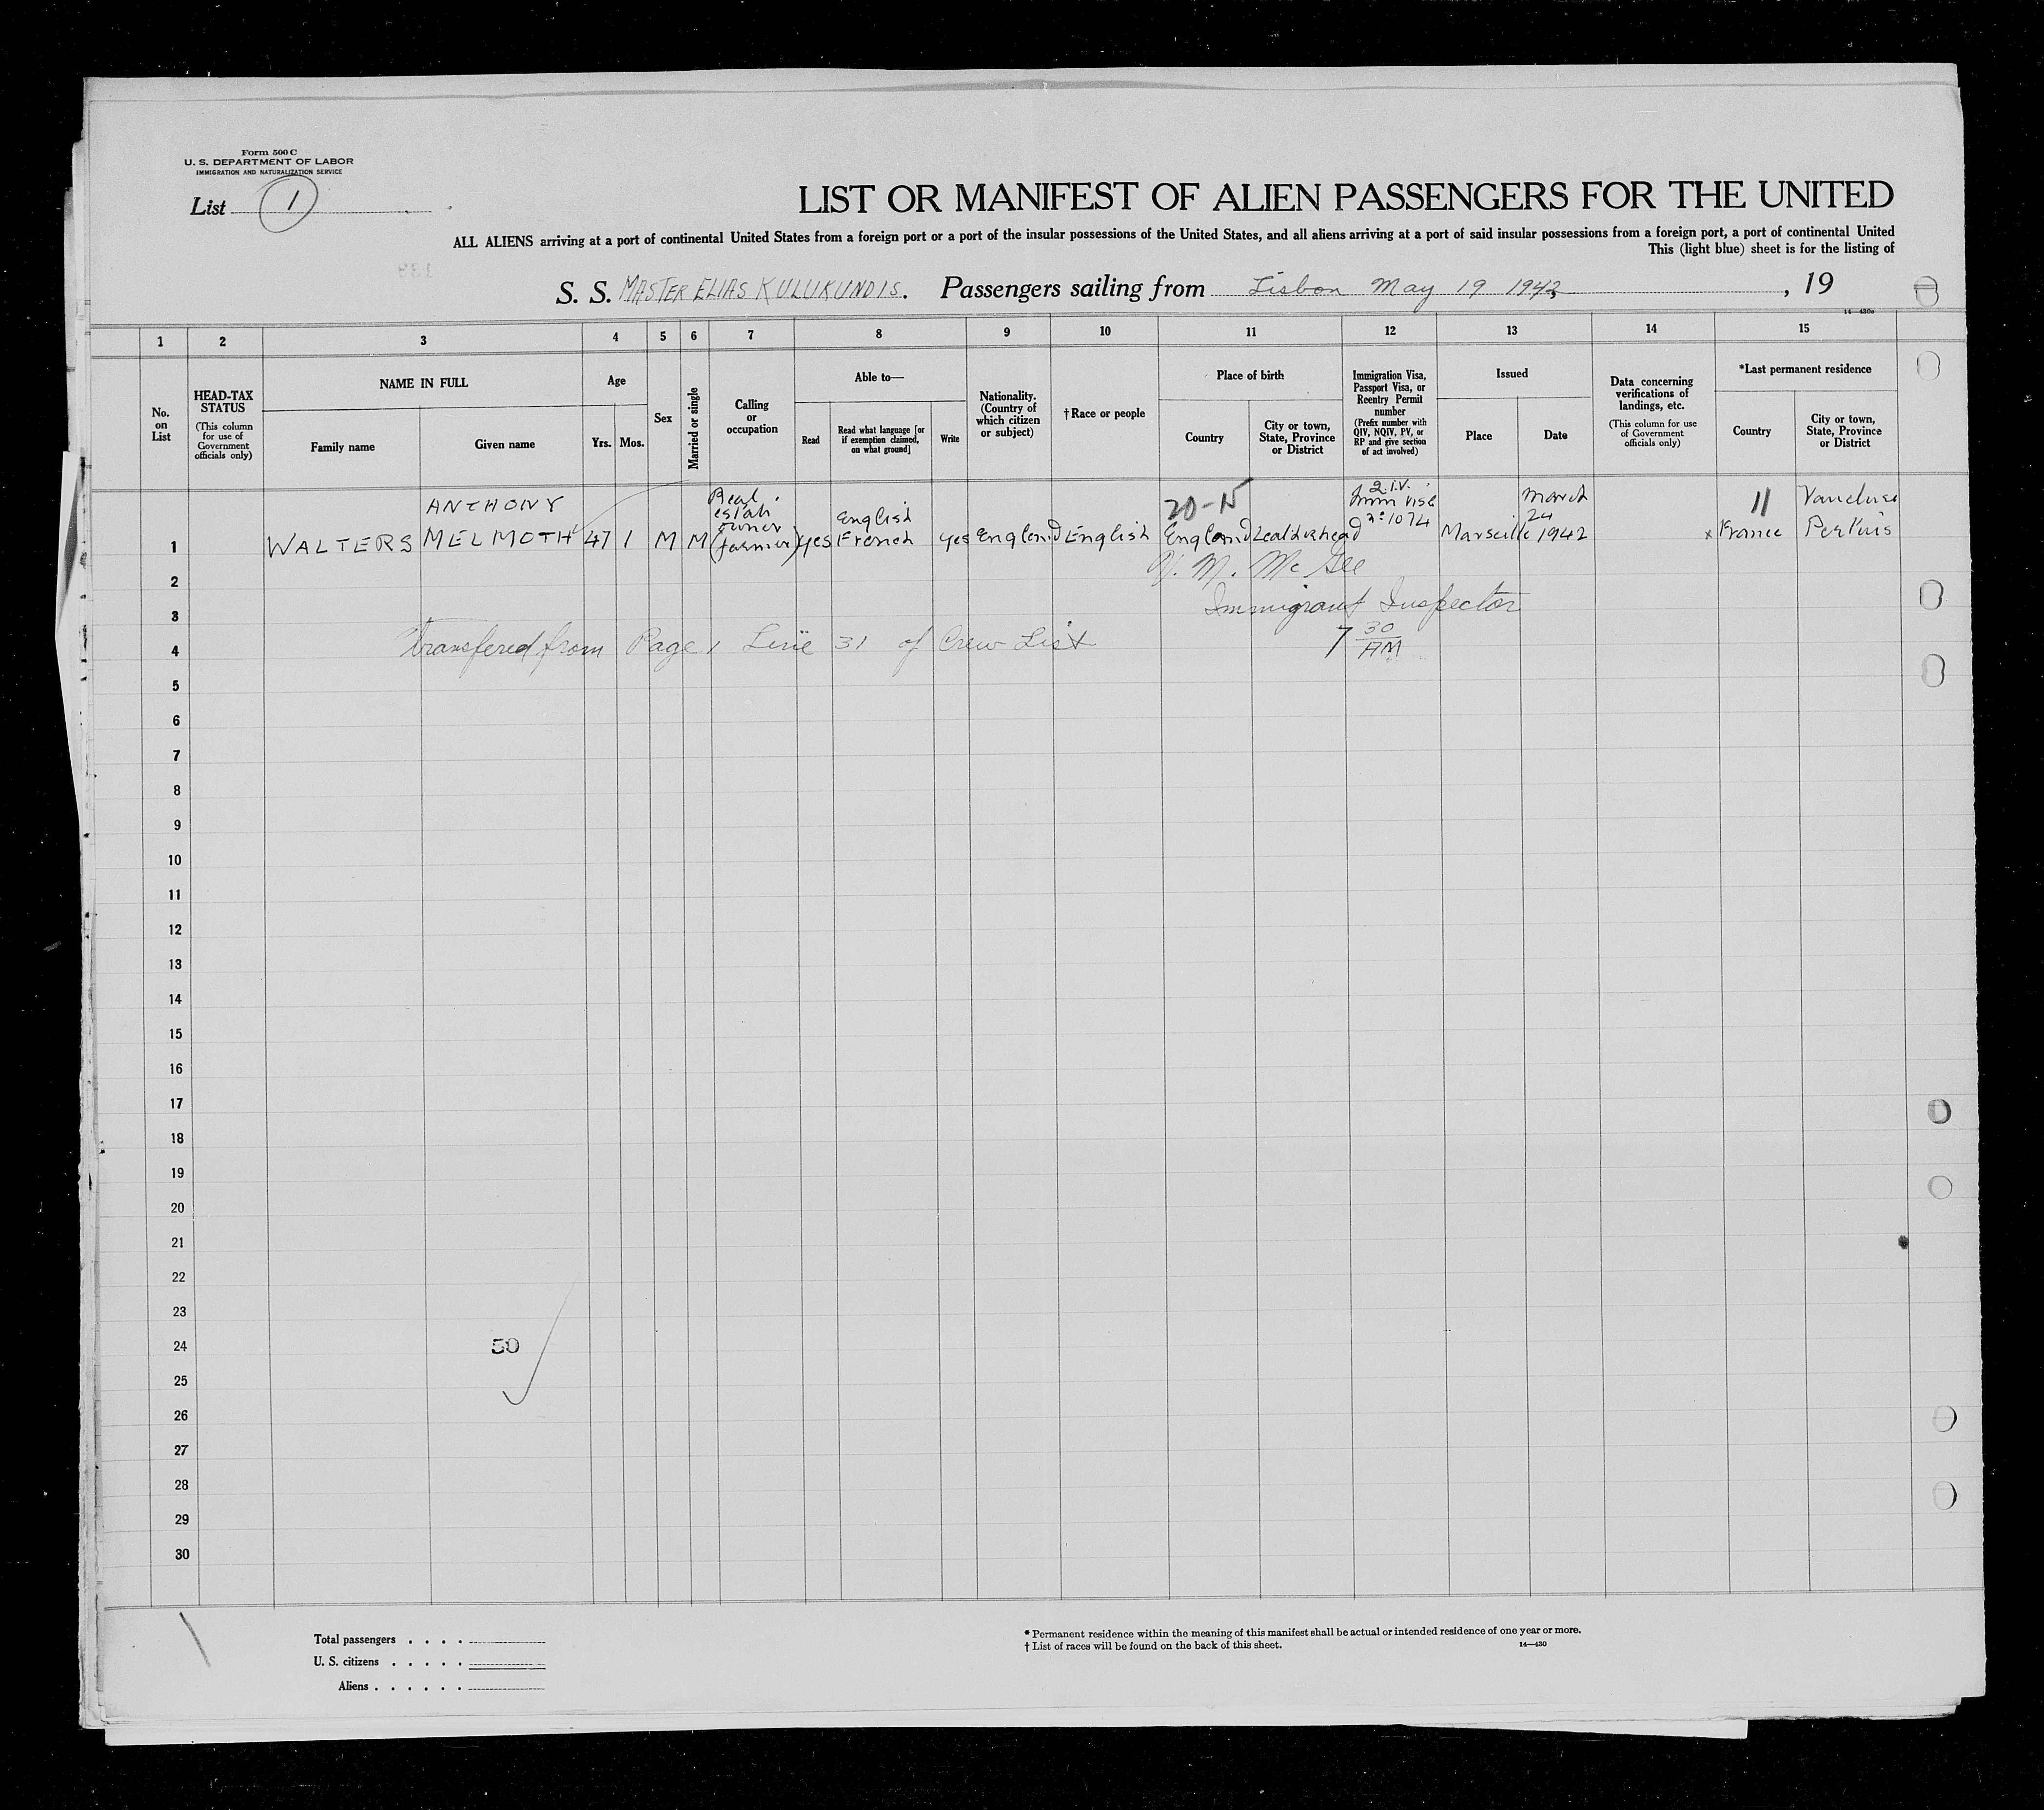 Form 500 C
U. S. DEPARTMENT OF LABOR
IMMIGRATION AND NATURALIZATION SERVICE
List 1
LIST OR MANIFEST OF ALIEN PASSENGERS FOR THE UNITED
ALL ALIENS arriving at a port of continental United States from a foreign port or a port of the insular possessions of the United States, and all aliens arriving at a port of said insular possessions from a foreign port, a port of continental United
This (light blue) sheet is for the listing of
S. S. MASTER ELIAS KULUKUNDIS. Passengers sailing from Lisbon May 19 1942, 19
14—430a
1 2 3 4 5 6 7 8 9 10 11 12 13 14 15
No. on List
HEAD-TAX STATUS
(This column for use of Government officials only)
NAME IN FULL
Family name
Given name
Age
Yrs. Mos.
Sex
Married or single
Calling or occupation
Able to—
Read
Read what language [or if exemption claimed, on what ground]
Write
Nationality. (Country of which citizen or subject)
†Race or people
Place of birth
Country
City or town, State, Province or District
Immigration Visa, Passport Visa, or Reentry Permit number
(Prefix number with QIV, NQIV, PV, or RP and give section of act involved)
Issued
Place
Date
Data concerning verifications of landings, etc.
(This column for use of Government officials only)
*Last permanent residence
Country
City or town, State, Province or District
1 WALTERS ANTHONY MELMOTH 47 1 M M Real estate owner (farmer) yes English French yes England English 20-N England Leatherhead Q.I.V. Imm Visa No 1074 Marseille March 24 1942 x 11 France Vaucluse Pertuis
2 McGee
3 Immigrant Inspector
4 transfered from Page 1 Line 31 of Crew List 7 30 AM
5
6
7
8
9
10
11
12
13
14
15
16
17
18
19
20
21
22
23
24 50
25
26
27
28
29
30
Total passengers . . . .
U. S. citizens . . . . .
Aliens . . . . . .
* Permanent residence within the meaning of this manifest shall be actual or intended residence of one year or more.
† List of races will be found on the back of this sheet.
14—430